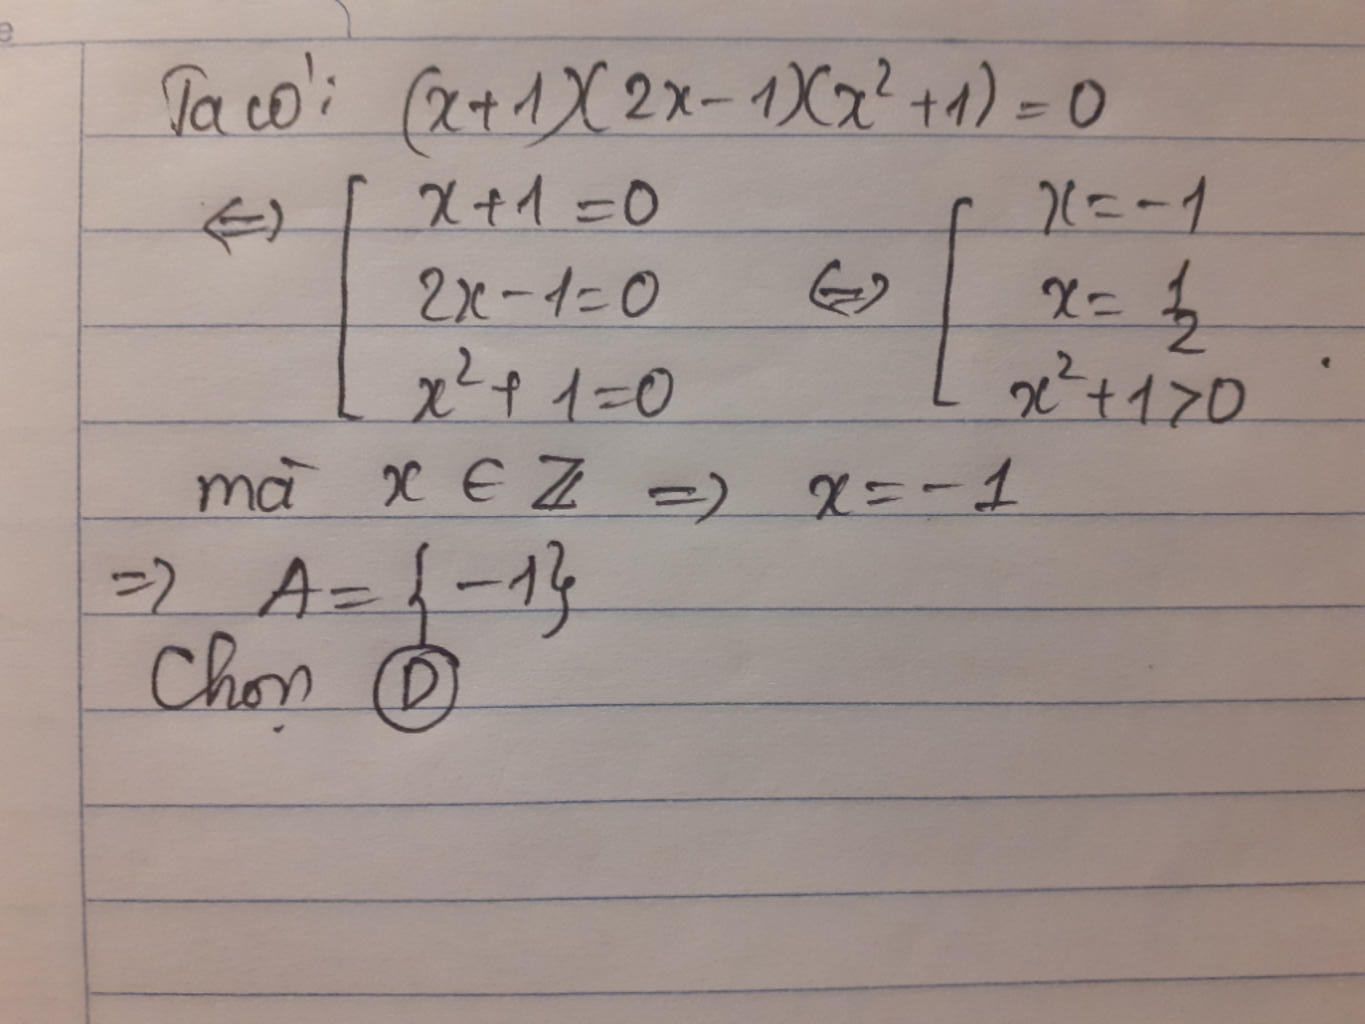 Ta có: (x+1)(2x-1)(x²+1)=0
⇔ [ x+1=0 ⇔ [ x=-1
2x-1=0 x=1/2
x²+1=0 x²+1>0
mà x ∈ ℤ => x=-1
=> A={-1}
Chọn D